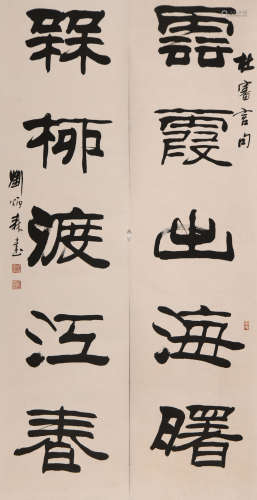 杜審言句
雲霞出海曙
梅柳渡江春
劉炳森書